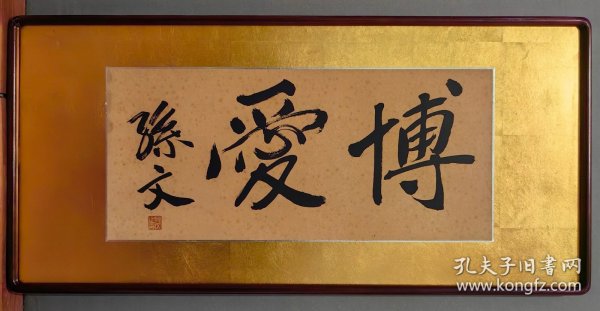 博愛
孫文
孔夫子旧書网
www.kongfz.com